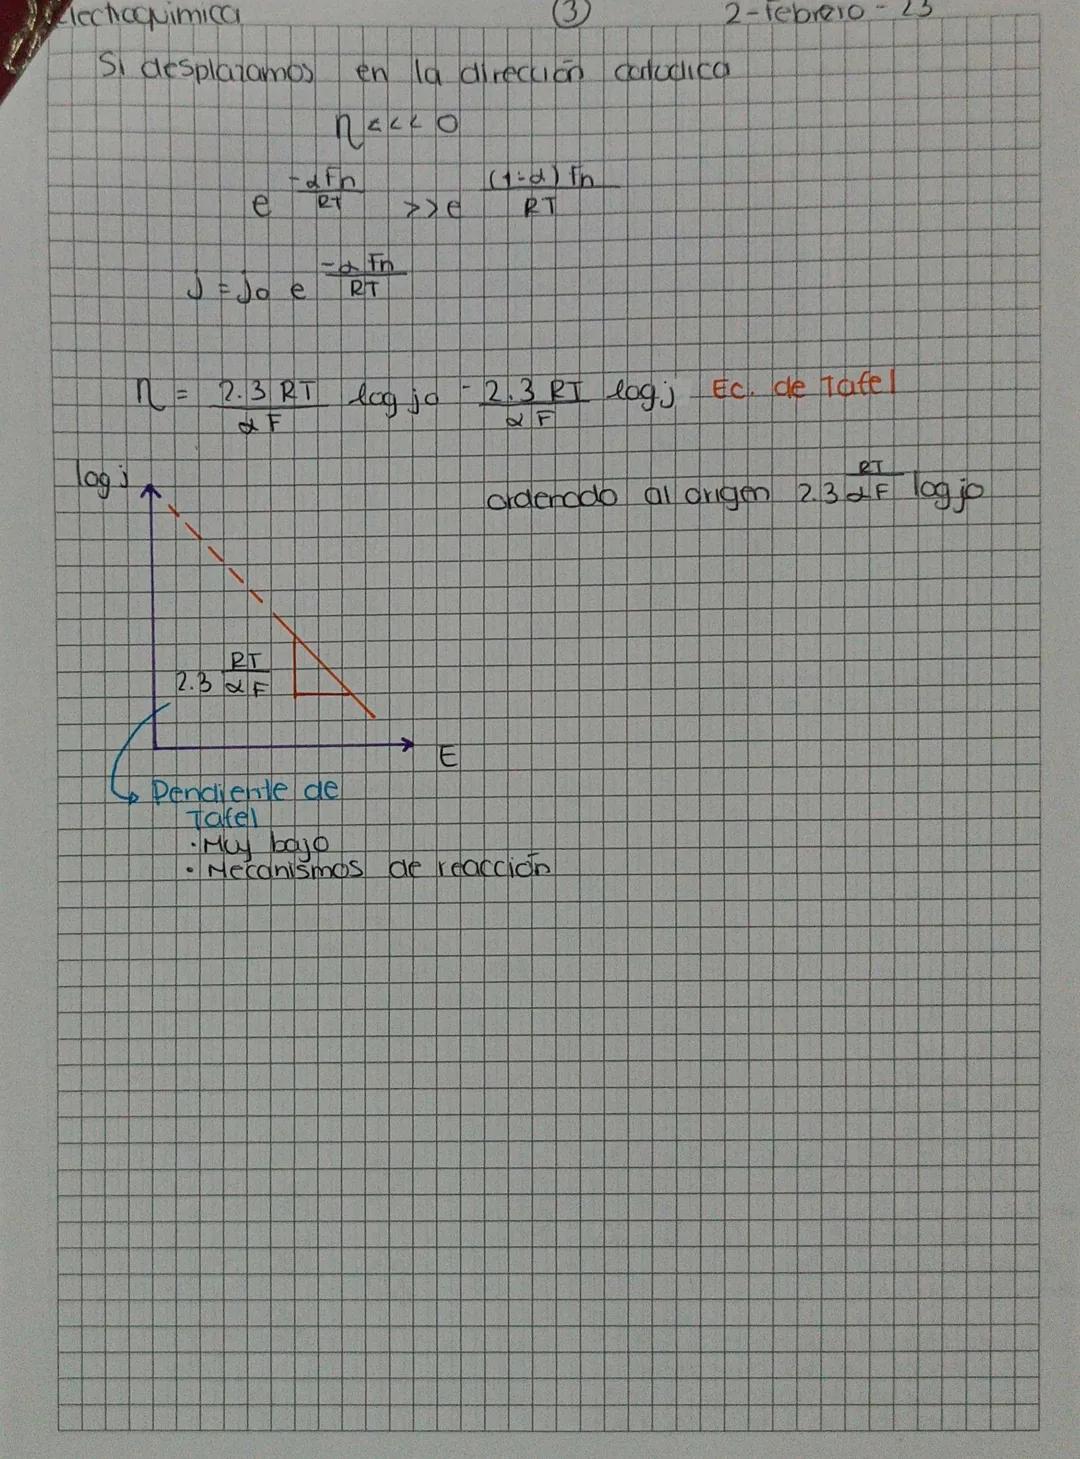 Electroquimica ③ 2-febrero-23
Si desplazamos en la dirección catodica
η<<< 0
e^(-αFη/RT) >> e^((1-α)Fη/RT)
j = jo e^(-αFη/RT)
η = 2.3 RT/αF log jo - 2.3 RT/αF log j Ec. de Tafel
log j
ordenado al origen 2.3 RT/αF log jo
2.3 RT/αF
E
Pendiente de
Tafel
· Muy bajo
· Mecanismos de reacción